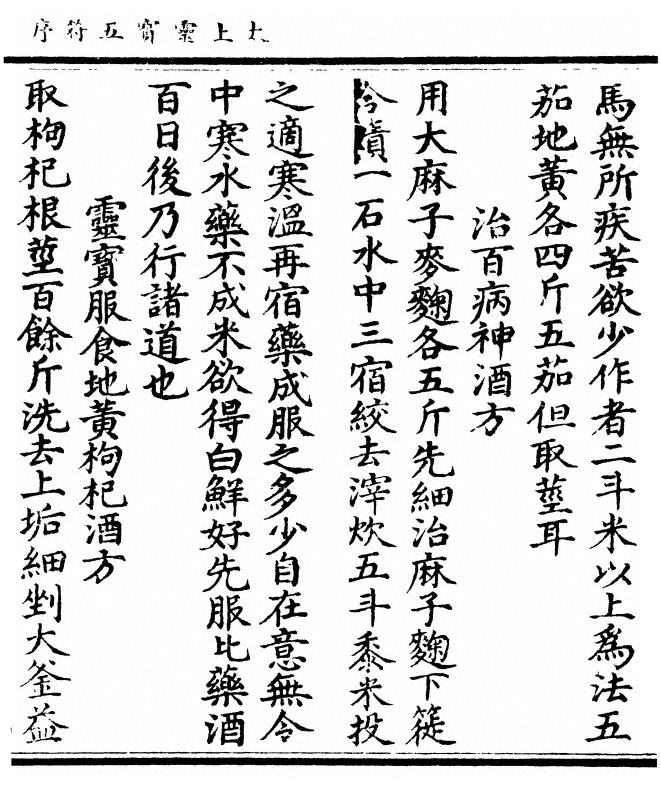 太上靈寳五符序
馬無所疾苦欲少作者二斗米以上爲法五
茄地黃各四斤五茄但取莖耳
治百病神酒方
用大麻子麥麴各五斤先細治麻子麴下簁
令漬一石水中三宿絞去滓炊五斗黍米投
之適寒溫再宿藥成服之多少自在意無令
中寒水藥不成米欲得白鮮好先服比藥酒
百日後乃行諸道也
靈寳服食地黃枸杞酒方
取枸杞根莖百餘斤洗去上垢細剉大釜益